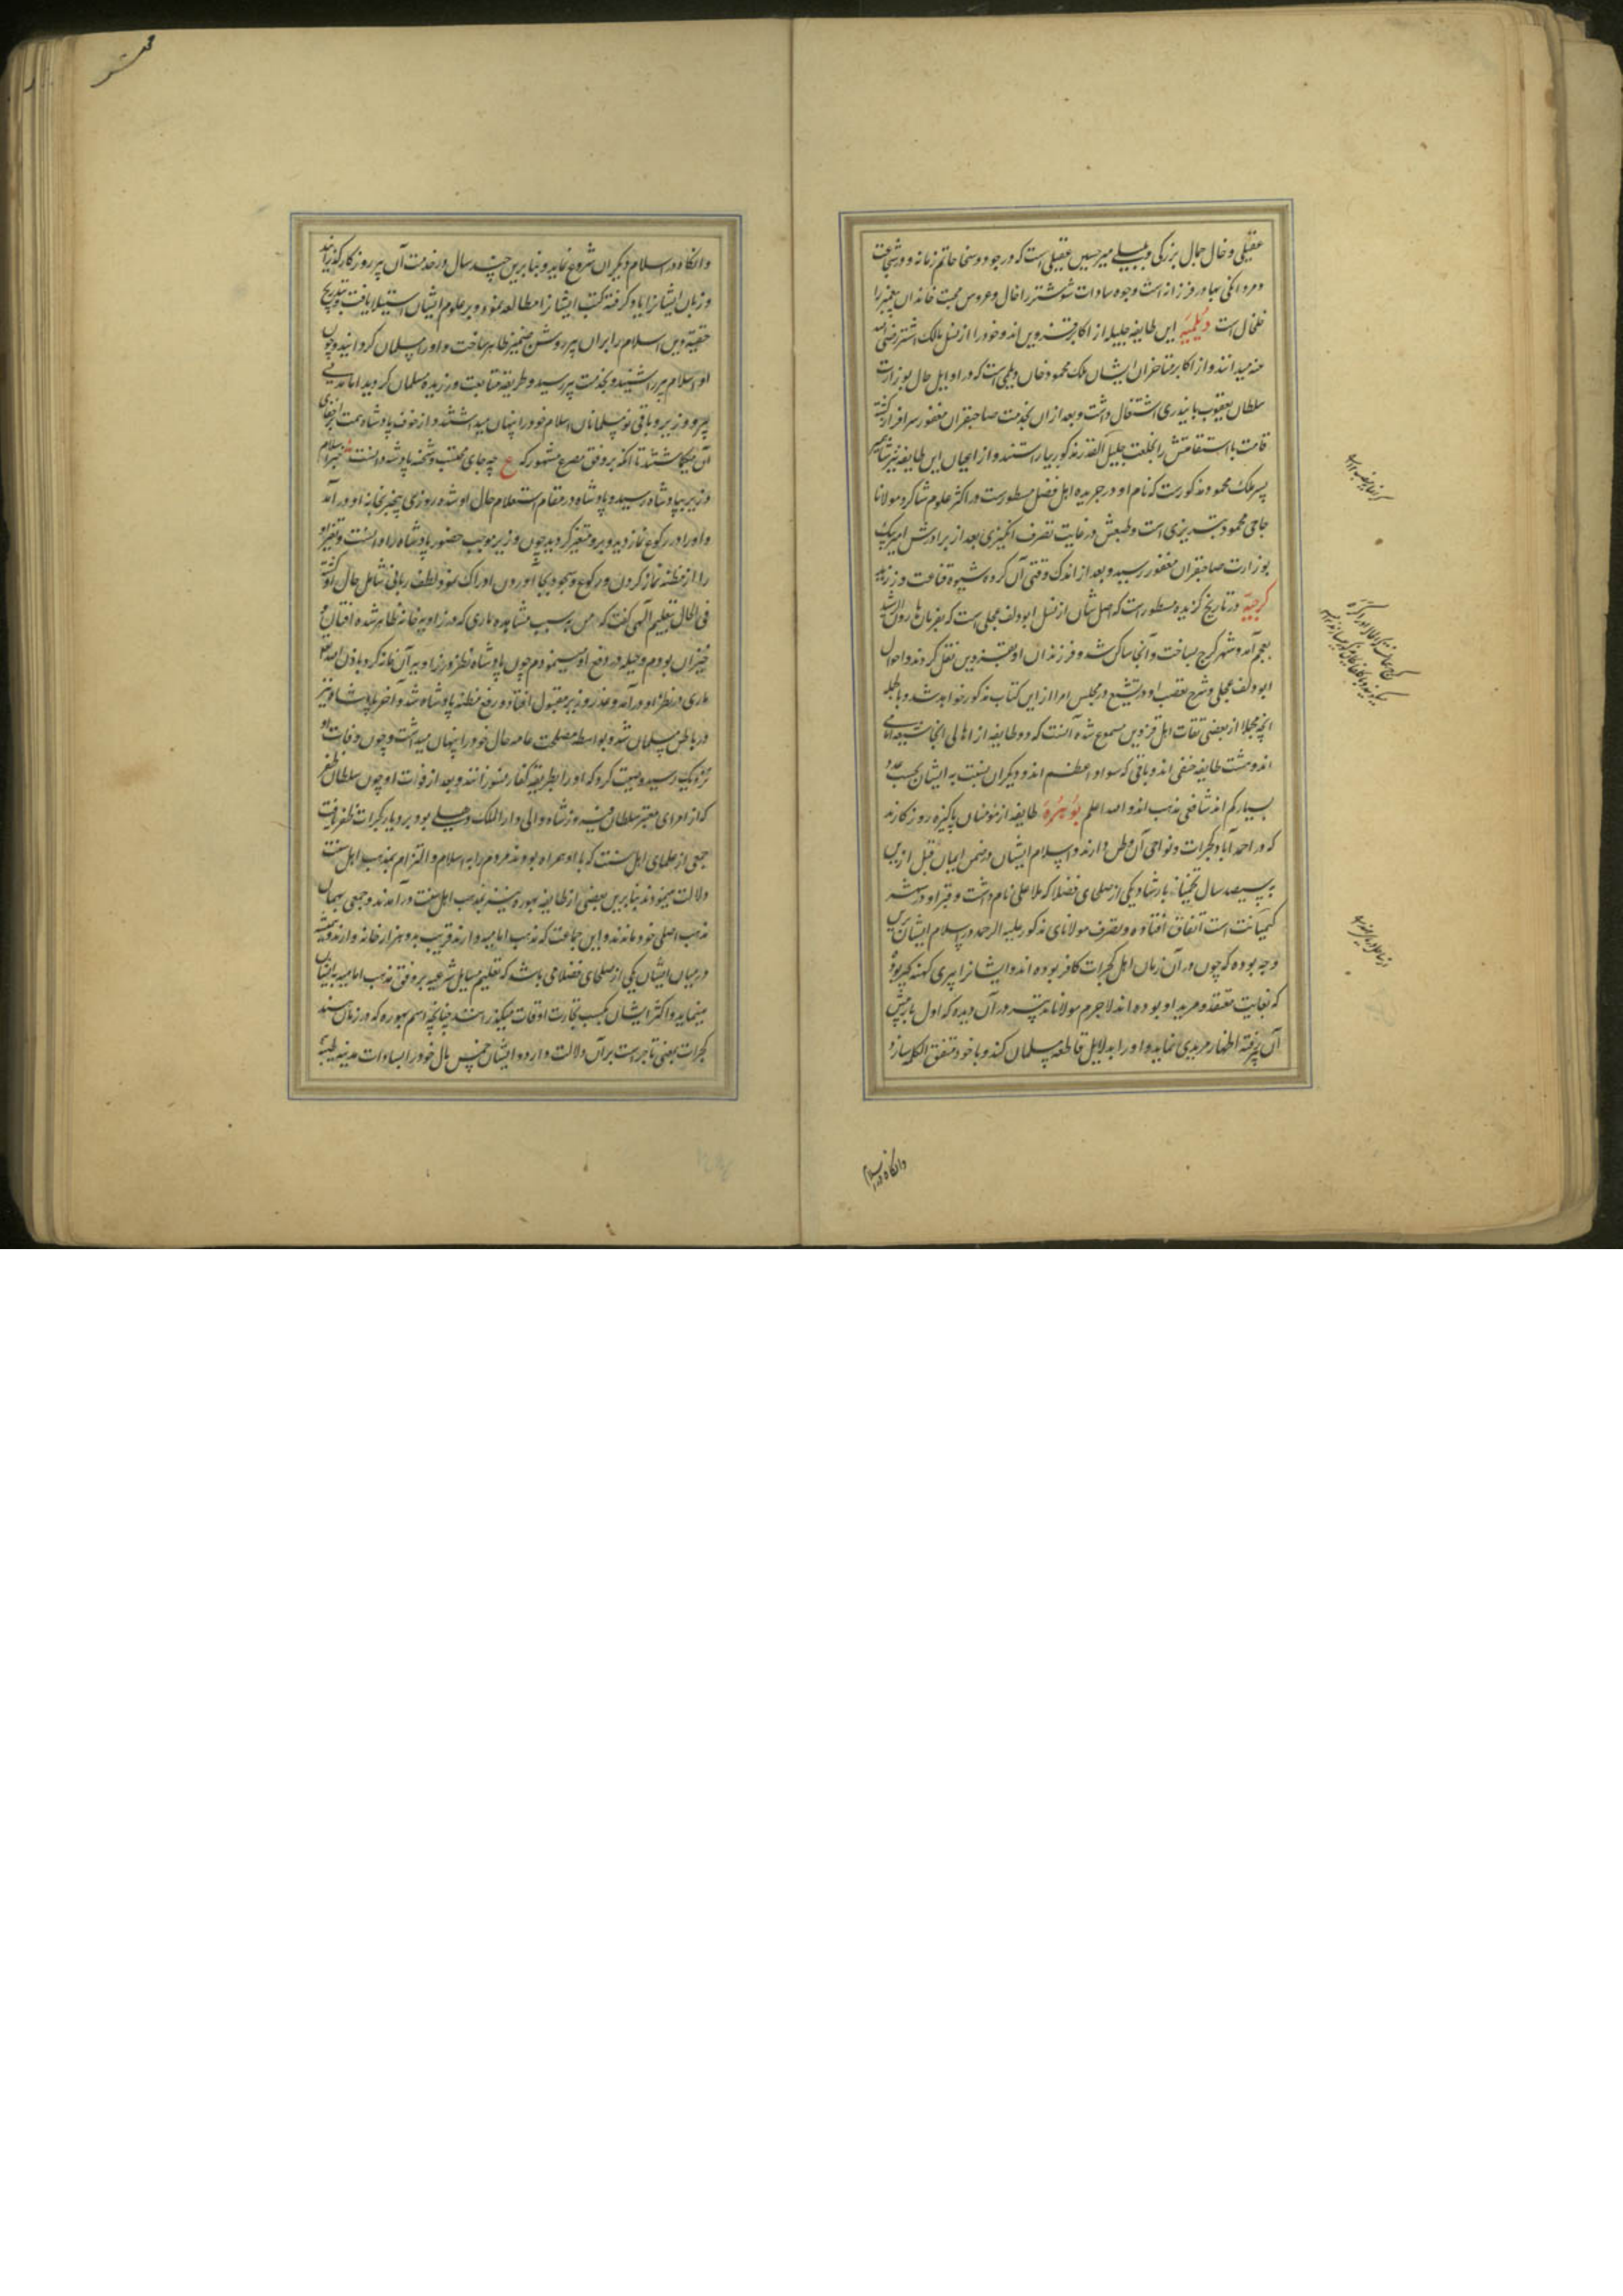 عقیلی و خال جمال بزرگی و نبیلی میر حسین عقیلی است که در جود و سخا حاتم زمانه و در شجاعت
و مردانگی بهادر فرزانه است وجوه سادات شوشتر را خال و عروس محبت خاندان پیغمبر را
خلخال است دیلمیه این طایفه جلیله از اکابر قزوین اند و خود را از نسل مالک اشتر رضی الله
عنه میدانند و از اکابر متاخران ایشان ملک محمود خان دیلمی است که در اوایل حال بوزارت
سلطان یعقوب بایندری اشتغال داشت و بعد از ان بخدمت صاحبقران مغفور سرافراز گشته
قامت با استقامتش را بخلعت جلیل القدر مذکور بیاراستند و از اعیان این طایفه نیز
پسر ملک محمود مذکورست که نام او در جریده اهل فضل مسطورست در اکثر علوم شاگرد مولانا
حاجی محمود تبریزی است و طبعش در غایت تصرف انگیزی بعد از برادرش امیر بیک
بوزارت صاحبقران مغفور رسید و بعد از اندک وقتی آن کرده شیوه قناعت ورزید
کرجیه در تاریخ گزیده مسطورست که اصل شان از نسل ابودلف عجلی است که بفرمان هارون الرشید
بعجم آمد و شهر کرج بساخت و آنجا ساکن شد و فرزندان او بقزوین نقل کردند و احوال
ابودلف عجلی و شرح تعصب او در تشیع در مجلس امرا از این کتاب مذکور خواهد شد و بالجمله
آنچه مجملا از بعضی ثقات اهل قزوین مسموع شده آنست که دو طایفه از اهالی آنجا شیعه امامی
اند و هشت طایفه حنفی اند و باقی که سواد اعظم اند و دیگران بنسبت به ایشان بحسب عدد
بسیار کم اند شافعی مذهب اند و الله اعلم بوهره طایفه از مؤمنان پاکیزه روزگارند
که در احمدآباد گجرات و نواحی آن وطن دارند و اسلام ایشان در ضمن ایمان قبل از این
به سیصد سال تخمینا بارشاد یکی از صلحای فضلا که ملا علی نام داشت و قبر او در شهر
کمبایت است اتفاق افتاده و تصرف مولانای مذکور علیه الرحمه در اسلام ایشان برین
وجه بوده که چون در آن زمان اهل گجرات کافر بوده اند و ایشانرا پیری کهنه گبر بود
که بغایت معتقد و مرید او بوده اند لاجرم مولانا تدبیر در آن دیده که اول بار پیش
آن پیر رفته اظهار مریدی نماید و او را بدلایل قاطعه مسلمان کند و با خود متفق الکلمه سازد
وانگاه در اسلام
وانگاه در اسلام دیگران شروع نماید و بنابرین چند سال در خدمت آن پیر روزگار گذرانید
و زبان ایشانرا یاد گرفته کتب ایشانرا مطالعه نمود و بر علوم ایشان استیلا یافت و بتدریج
حقیقت دین اسلام را بران پیر روشن ضمیر ظاهر ساخت و او را مسلمان گردانید و چون
او اسلام پیر را شنید و بخدمت پیر رسید و طریقه متابعت ورزیده مسلمان گردید اما مدتی
پیر و وزیر و باقی نو مسلمانان اسلام خود را پنهان میداشتند و از خوف پادشاه همت بر اخفای
آن میگماشتند تا آنکه بر وفق مصرع مشهور که ع چه جای محتسب و شحنه پادشه دانست خبر اسلام
وزیر بپادشاه رسید و پادشاه در مقام استعلام حال او شده روزی بیخبر بخانه او در آمد
و او را در رکوع نماز دید و برو متغیر گردید چون وزیر موجب حضور پادشاه را دانست و تغیر او
را از مظنه نماز کردن و رکوع و سجود بجا آوردن ادراک نمود لطف ربانی شامل حال او گشته
فی الحال بتعلیم الهی گفت که من بسبب مشاهده ماری که در زاویه خانه ظاهر شده افتان و
خیزان بودم و حیله در دفع او مینمودم چون پادشاه نظر در زاویه آن خانه کرد باذن الله تعالی
ماری در نظر او در آمد و عذر وزیر مقبول افتاد و رفع مظنه پادشاه شد و آخر پادشاه نیز
در باطن مسلمان شد و بواسطه مصلحت عامه حال خود را پنهان میداشت و چون وفات او
نزدیک رسید وصیت کرد که او را بطریقه کفار نسوزانند و بعد از وفات او چون سلطان ظفر
که از امرای معتبر سلطان فیروز شاه والی دارالملک دهلی بود بر دیار گجرات ظفر یافت
جمعی از علمای اهل سنت که با او همراه بودند مردم را به اسلام و التزام بمذهب اهل سنت
دلالت مینمودند بنابرین بعضی از طایفه بهوره نیز بمذهب اهل سنت در آمدند و جمعی بهمان
مذهب اصلی خود ماندند و این جماعت که مذهب امامیه دارند قریب بدو هزار خانه وارند و همیشه
در میان ایشان یکی از صلحای فضلا می باشد که تعلیم مسایل شرعیه بر وفق مذهب امامیه بایشان
مینماید و اکثر ایشان بکسب تجارت اوقات میگذرانند چنانچه اسم بهوره که در زبان هند
گجرات بمعنی تاجر است بر آن دلالت دارد و ایشان خمس مال خود را بسادات مدینه طیبه